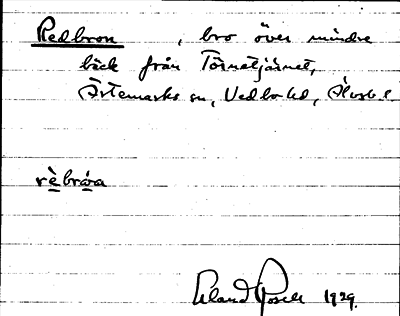 Redbron , bro över mindre
bäck från Törnetjärnet,
Ärtemarks sn, Vedbo hd, Älvsb. l.
rèbrǫa
Erland Rosell 1929.